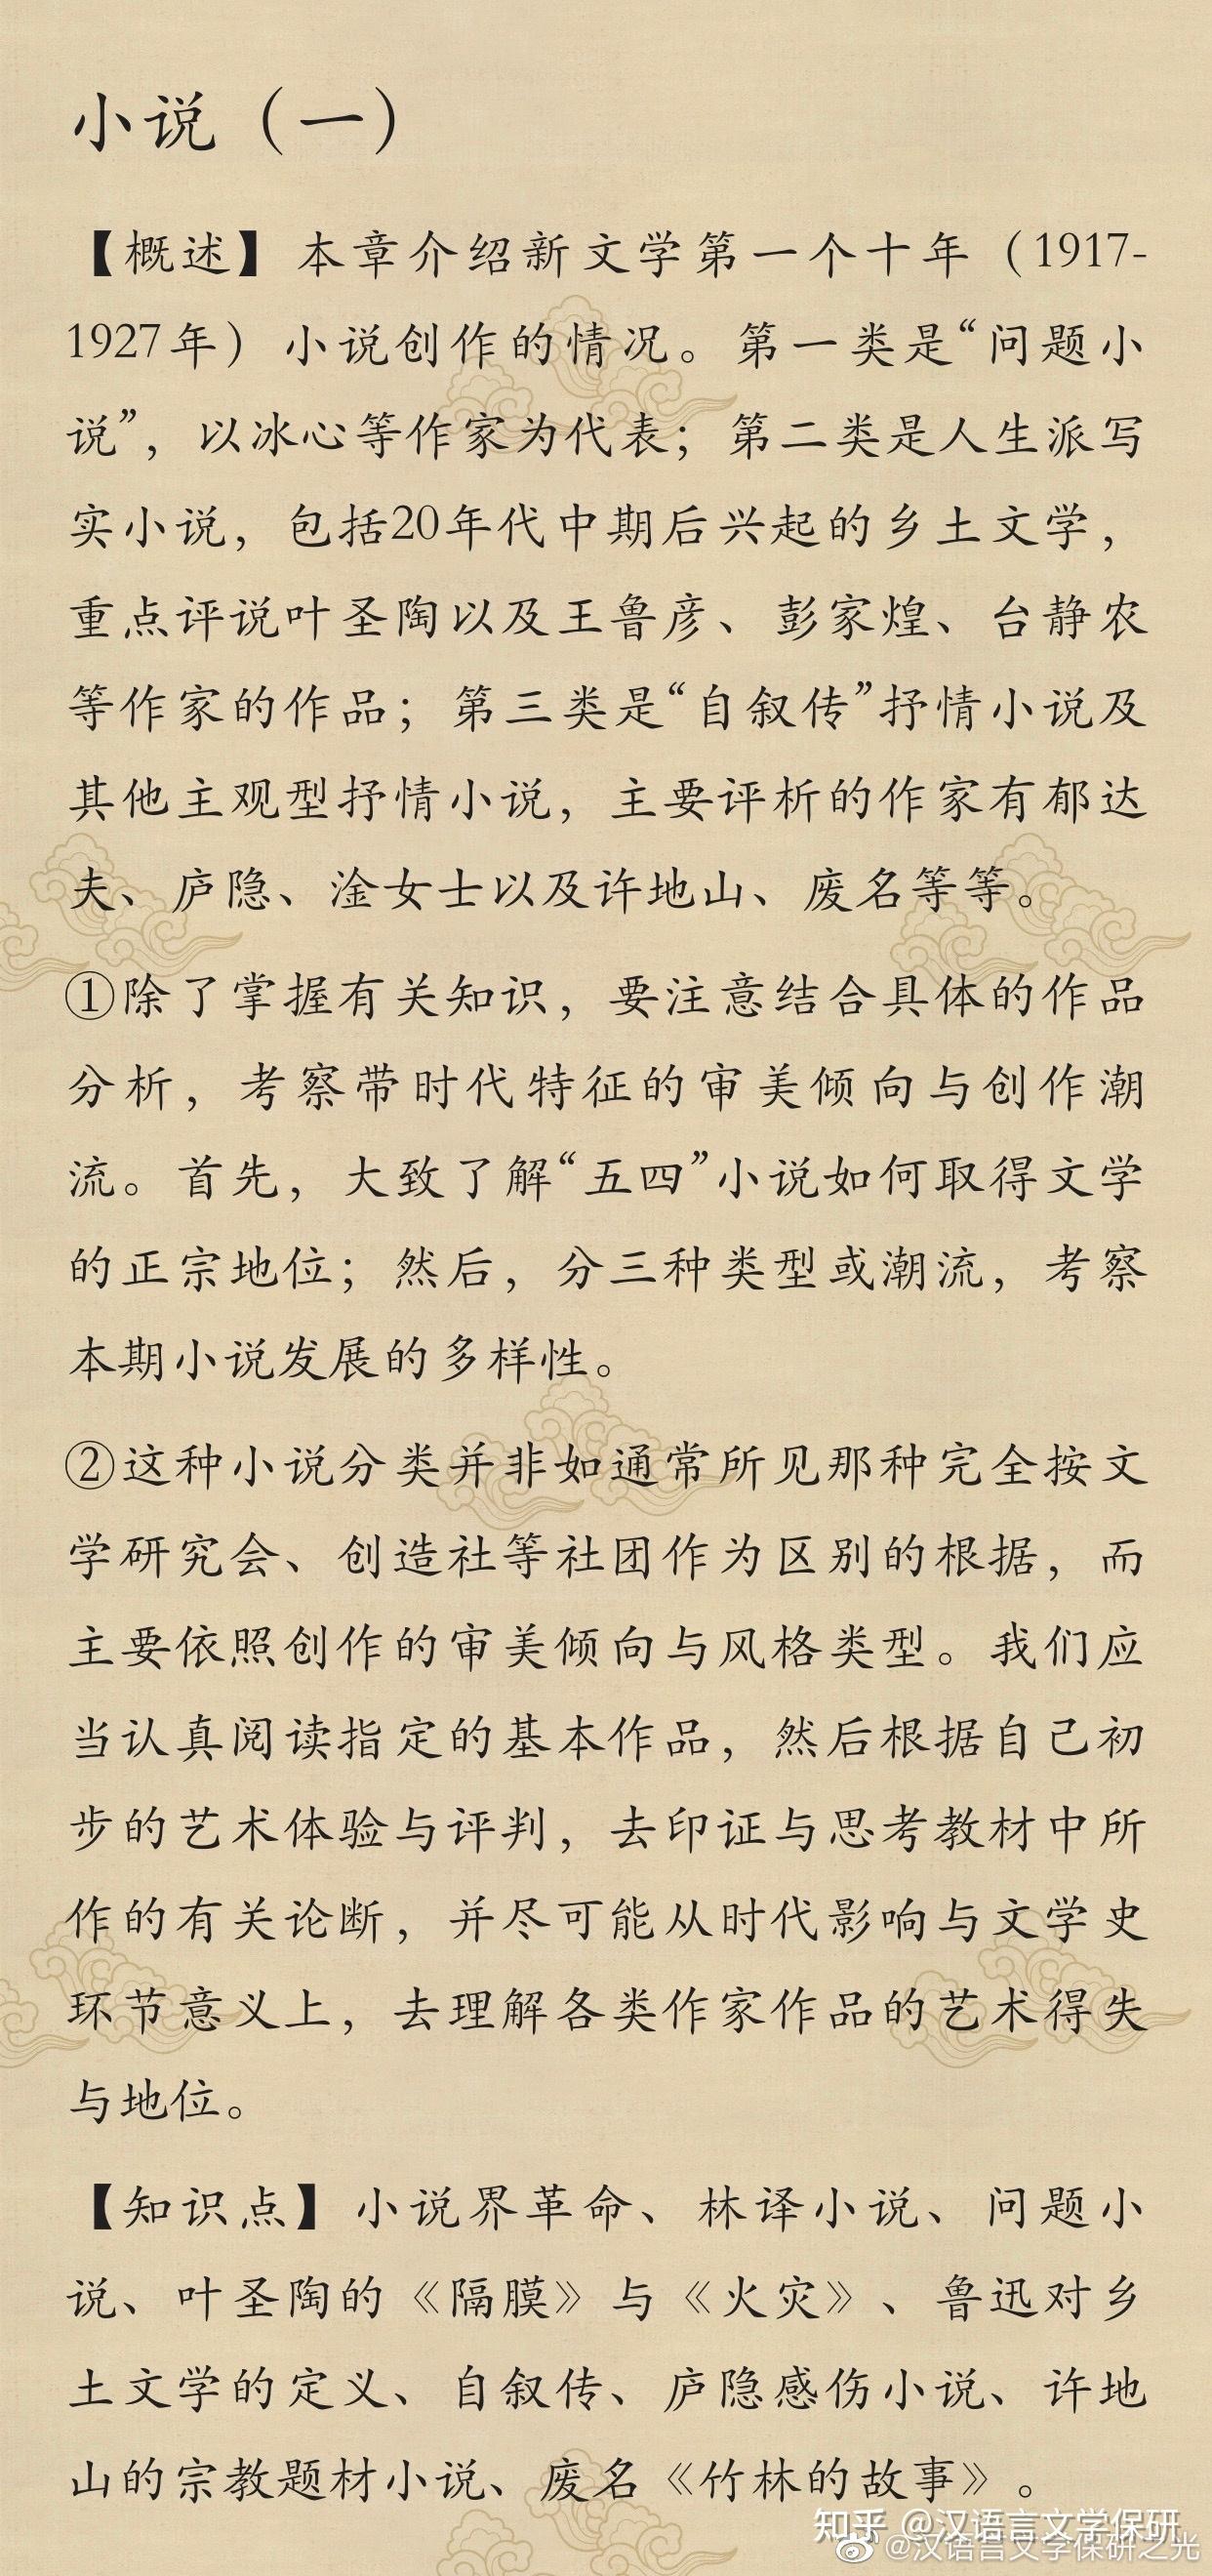 小说（一）
【概述】本章介绍新文学第一个十年（1917-
1927年）小说创作的情况。第一类是“问题小
说”，以冰心等作家为代表；第二类是人生派写
实小说，包括20年代中期后兴起的乡土文学，
重点评说叶圣陶以及王鲁彦、彭家煌、台静农
等作家的作品；第三类是“自叙传”抒情小说及
其他主观型抒情小说，主要评析的作家有郁达
夫、庐隐、淦女士以及许地山、废名等等。
①除了掌握有关知识，要注意结合具体的作品
分析，考察带时代特征的审美倾向与创作潮
流。首先，大致了解“五四”小说如何取得文学
的正宗地位；然后，分三种类型或潮流，考察
本期小说发展的多样性。
②这种小说分类并非如通常所见那种完全按文
学研究会、创造社等社团作为区别的根据，而
主要依照创作的审美倾向与风格类型。我们应
当认真阅读指定的基本作品，然后根据自己初
步的艺术体验与评判，去印证与思考教材中所
作的有关论断，并尽可能从时代影响与文学史
环节意义上，去理解各类作家作品的艺术得失
与地位。
【知识点】小说界革命、林译小说、问题小
说、叶圣陶的《隔膜》与《火灾》、鲁迅对乡
土文学的定义、自叙传、庐隐感伤小说、许地
山的宗教题材小说、废名《竹林的故事》。
知乎 @汉语言文学保研
@汉语言文学保研之光